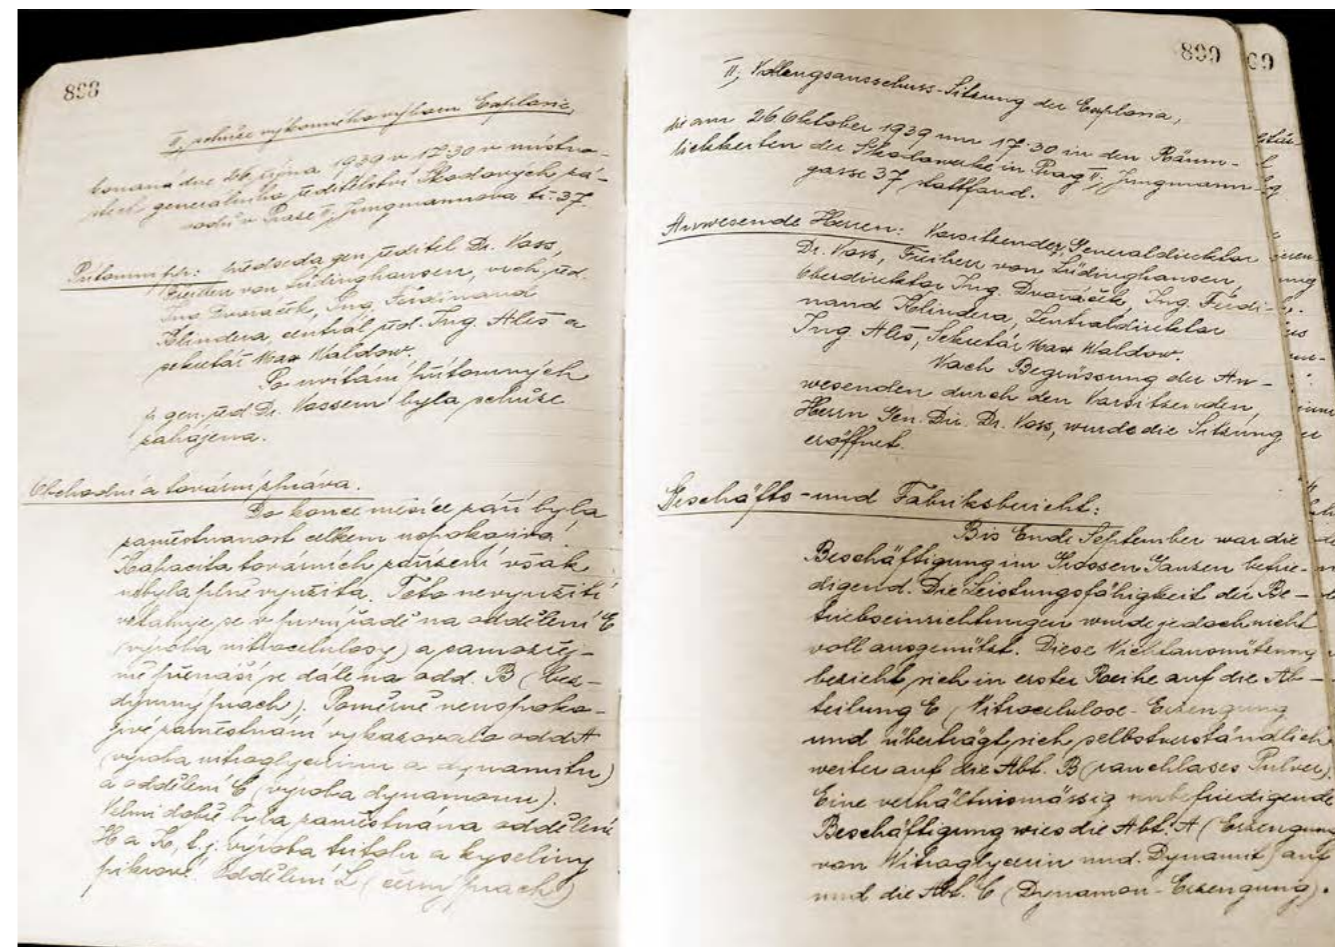 898
II. schůze výkonného výboru Explosie,
konaná dne 26. října 1939 v 17.30 v místno-
stech generálního ředitelství Škodových zá-
vodů v Praze II, Jungmannova tř. 37.
Přítomni pp.: předseda gen. ředitel Dr. Voss,
Freiherr von Lüdinghausen, vrch. řed.
Ing. Dvořáček, Ing. Ferdinand
Klindera, centrál. řed. Ing. Aleš a
sekretář Max Waldow.
Po uvítání přítomných
p. gen. řed. Dr. Vossem byla schůze
zahájena.
Obchodní a tovární zpráva.
Do konce měsíce září byla
zaměstnanost celkem uspokojivá.
Kapacita továrních zařízení však
nebyla plně využita. Toto nevyužití
vztahuje se v prvni řadě na oddělení E
(výroba nitrocelulosy) a samozřej-
mě přenáší se dále na odd. B (bez-
dýmný prach). Poměrně neuspoko-
jivé zaměstnání vykazovalo odd. A
(výroba nitroglycerinu a dynamitu)
a oddělení C (výroba dynamonu).
Velmi dobře byla zaměstnána oddělení
H a K, t.j. výroba tritolu a kyseliny
pikrové. Oddělení L (černý prach)
899
II. Vollzugsausschuss-Sitzung der Explosia,
die am 26. Oktober 1939 um 17.30 in den Räum-
lichkeiten der Škodawerke in Prag II, Jungmann-
gasse 37 stattfand.
Anwesende Herren: Vorsitzender, Generaldirektor
Dr. Voss, Freiherr von Lüdinghausen,
Oberdirektor Ing. Dvořáček, Ing. Ferdi-
nand Klindera, Zentraldirektor
Ing. Aleš, Sekretär Max Waldow.
Nach Begrüssung der An-
wesenden durch den Vorsitzenden,
Herrn Gen. Dir. Dr. Voss, wurde die Sitzung
eröffnet.
Geschäfts- und Fabriksbericht:
Bis Ende September war die
Beschäftigung im Grossen Ganzen befrie-
digend. Die Leistungsfähigkeit der Be-
triebseinrichtungen wurde jedoch nicht
voll ausgenützt. Diese Nichtausnützung
bezieht sich in erster Reihe auf die Ab-
teilung E (Nitrocelulose-Erzeugung
und überträgt sich selbstverständlich
weiter auf die Abt. B (rauchloses Pulver).
Eine verhältnismässig unbefriedigende
Beschäftigung wies die Abt. A (Erzeugung
von Nitroglycerin und Dynamit) auf
und die Abt. C (Dynamon-Erzeugung).